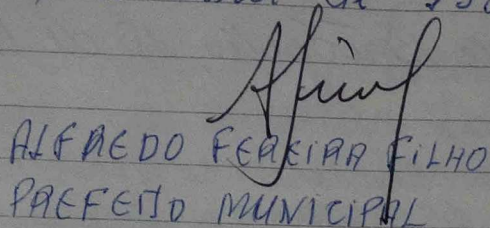 ALFREDO FEREIRA FILHO
PREFEITO MUNICIPAL